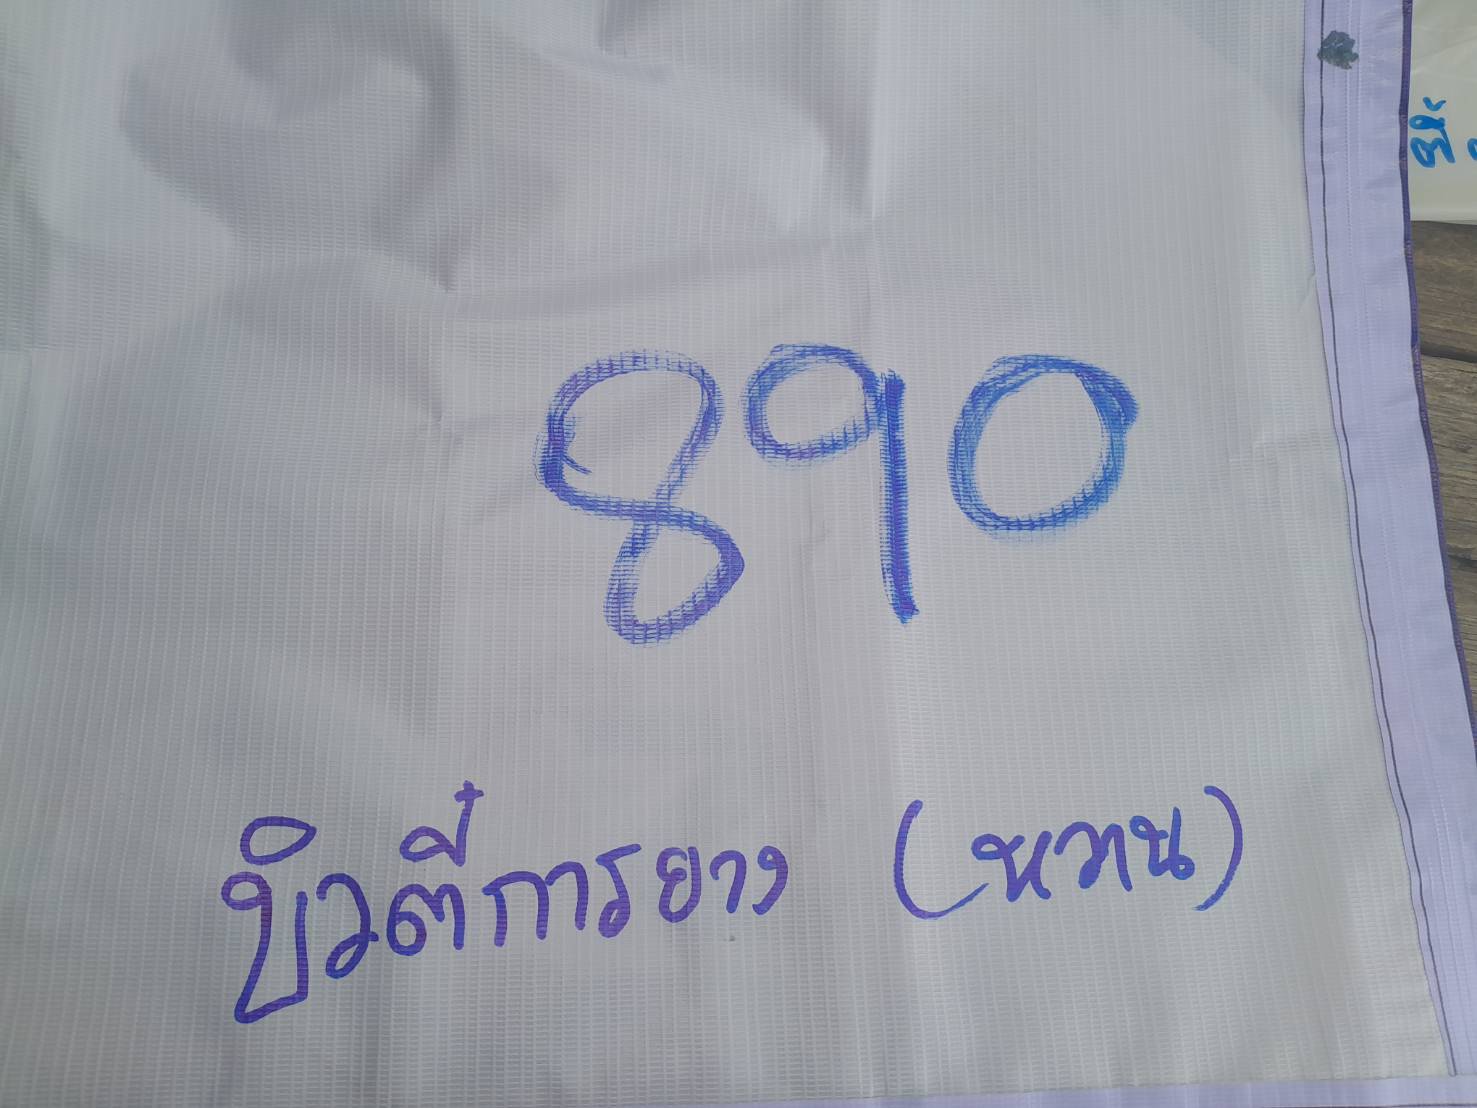 890
บิวตี๋การยาง (หวาน)